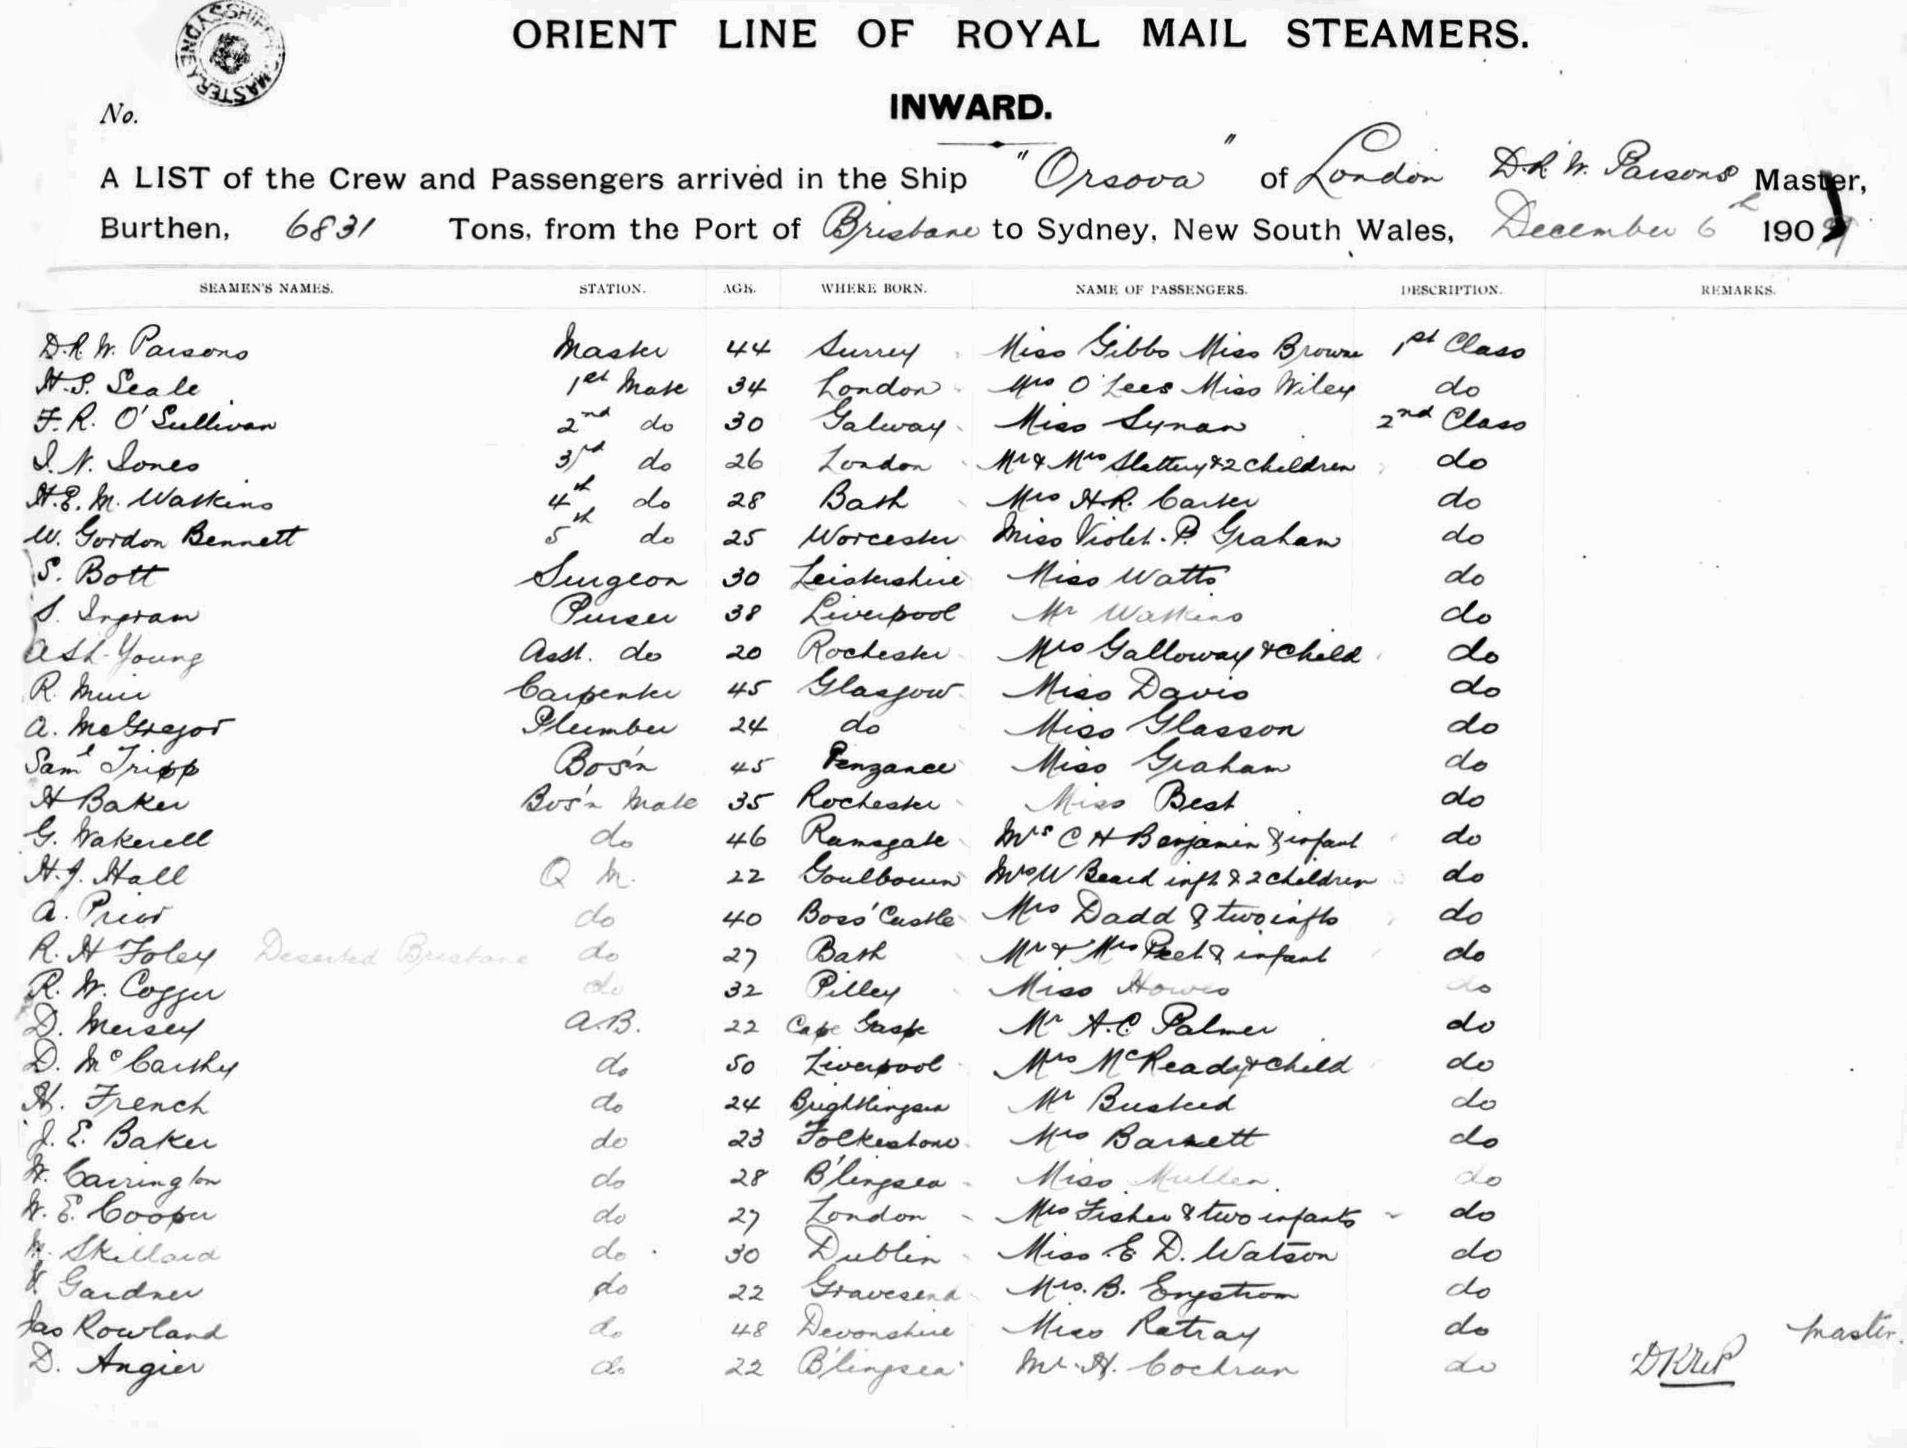 SHIPPING MASTER SYDNEY
ORIENT LINE OF ROYAL MAIL STEAMERS.
INWARD.
No.
A LIST of the Crew and Passengers arrived in the Ship "Orsova" of London D.R.W. Parsons Master,
Burthen, 6831 Tons, from the Port of Brisbane to Sydney, New South Wales, December 6th 1909
SEAMEN'S NAMES. STATION. AGE. WHERE BORN. NAME OF PASSENGERS. DESCRIPTION. REMARKS.
D.R.W. Parsons Master 44 Surrey Miss Gibbs Miss Browne 1st Class
H.S. Seale 1st Mate 34 London Mrs O'Lees Miss Wiley do
F.R. O'Sullivan 2nd do 30 Galway Miss Synan 2nd Class
I.N. Jones 3rd do 26 London Mr & Mrs Slattery & 2 children do
H.E.M. Watkins 4th do 28 Bath Mrs H.R. Carter do
W. Gordon Bennett 5th do 25 Worcester Miss Violet. P. Graham do
S. Bott Surgeon 30 Leistershire Miss Watts do
S. Ingram Purser 38 Liverpool Mr Watkins do
Young Asst. do 20 Rochester Mrs Galloway & child do
R. Muir Carpenter 45 Glasgow Miss Davis do
A. McGregor Plumber 24 do Miss Glasson do
Saml Tripp Bos'n 45 Penzance Miss Graham do
H Baker Bos'n Mate 35 Rochester Miss Best do
G. Wakerell do 46 Ramsgate Mrs C H Benjamin & infant do
H.J. Hall Q M. 22 Goulbourn Mrs W Beard inft & 2 children do
A. Prior do 40 Boss' Castle Mrs Dadd & two infts do
R. H Foley Deserted Brisbane do 27 Bath Mr & Mrs Peet & infant do
R. W. Cogger do 32 Pilley Miss Howes do
D. Mersey A.B. 22 Cape Gaspe Mr A.C. Palmer do
D. McCarthy do 50 Liverpool Mrs McReady & child do
H. French do 24 Brightlingsea Mr Busted do
J. E. Baker do 23 Folkestone Mrs Barnett do
W. Carrington do 28 B'lingsea Miss Mullen do
W. E. Cooper do 27 London Mrs Fisher & two infants do
M. Skillard do 30 Dublin Miss E D. Watson do
Gardner do 22 Gravesend Mrs. B. Engstrom do
Jas Rowland do 48 Devonshire Miss Ratray do Master.
D. Angier do 22 B'lingsea Mr. H. Cochran do